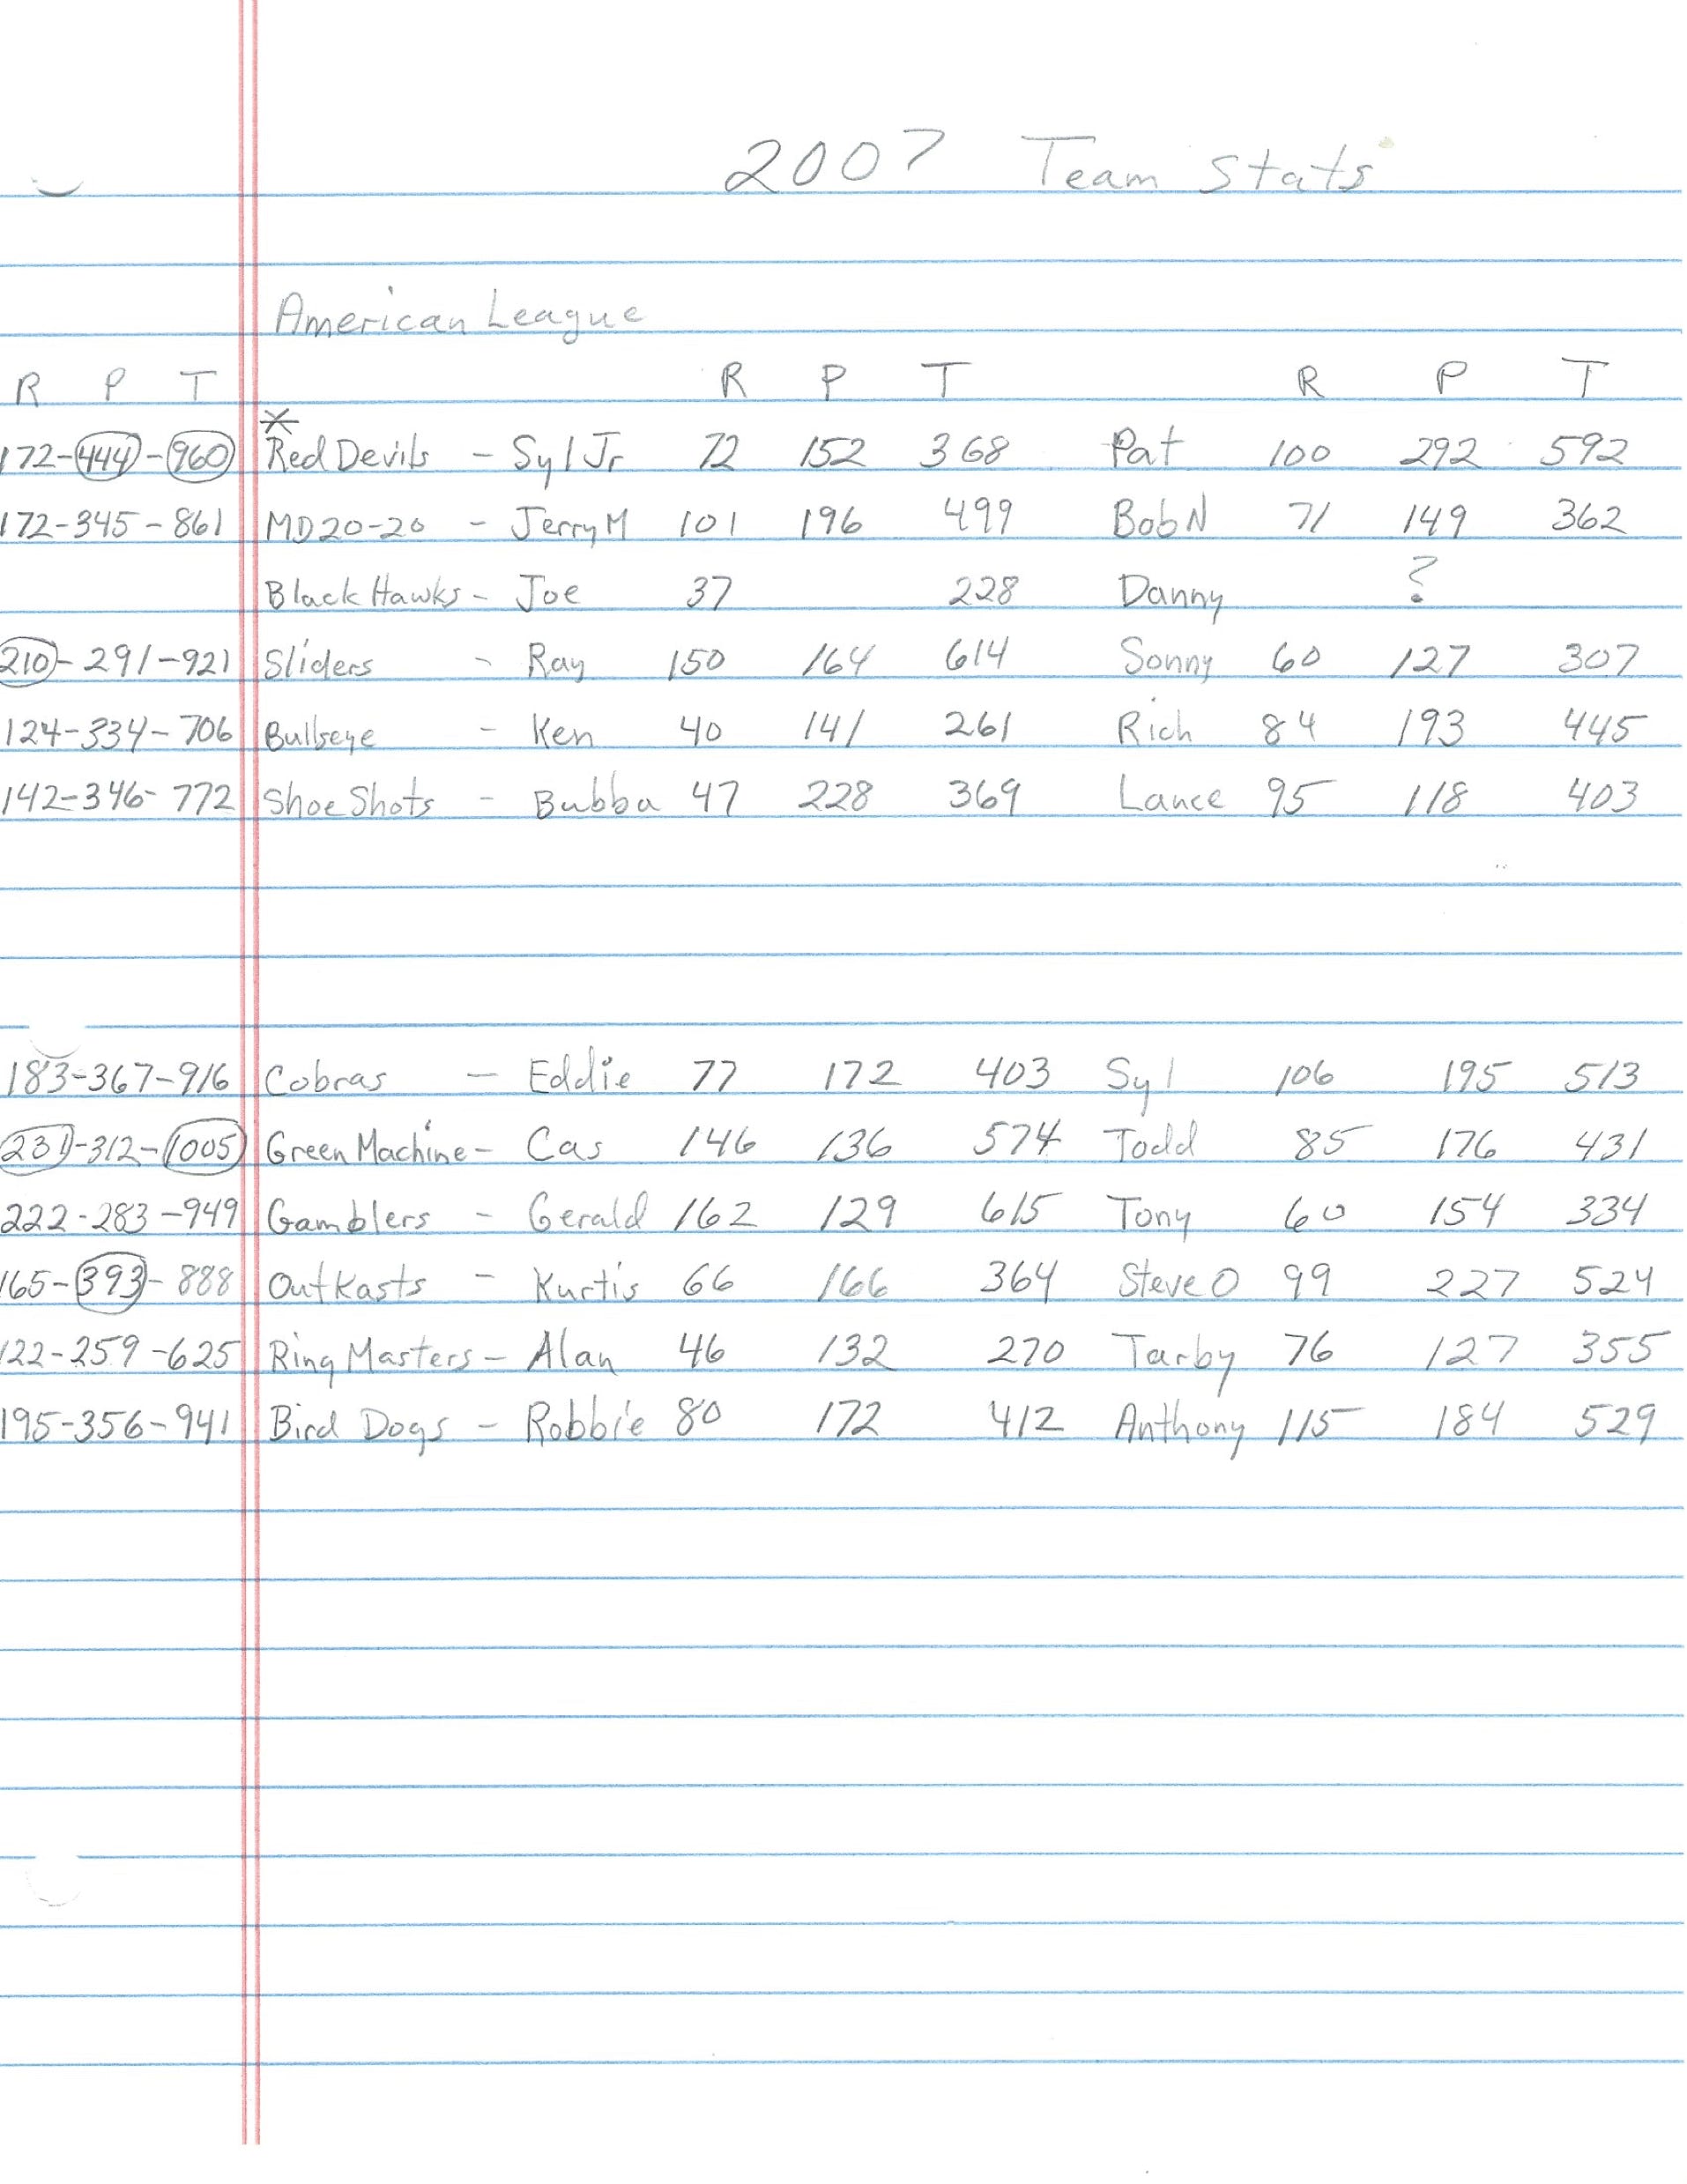 2007 Team Stats
American League
R P T R P T R P T
*
172-444-960 Red Devils - Syl Jr 72 152 368 Pat 100 292 592
172-345-861 MD20-20 - Jerry M 101 196 499 Bob N 71 149 362
Black Hawks - Joe 37 228 Danny ?
210-291-921 Sliders - Ray 150 164 614 Sonny 60 127 307
124-334-706 Bullseye - Ken 40 141 261 Rich 84 193 445
142-346-772 Shoe Shots - Bubba 47 228 369 Lance 95 118 403
183-367-916 Cobras - Eddie 77 172 403 Syl 106 195 513
231-312-1005 Green Machine - Cas 146 136 574 Todd 85 176 431
222-283-949 Gamblers - Gerald 162 129 615 Tony 60 154 334
165-393-888 Outkasts - Kurtis 66 166 364 Steve O 99 227 524
122-259-625 Ring Masters - Alan 46 132 270 Tarby 76 127 355
195-356-941 Bird Dogs - Robbie 80 172 412 Anthony 115 184 529